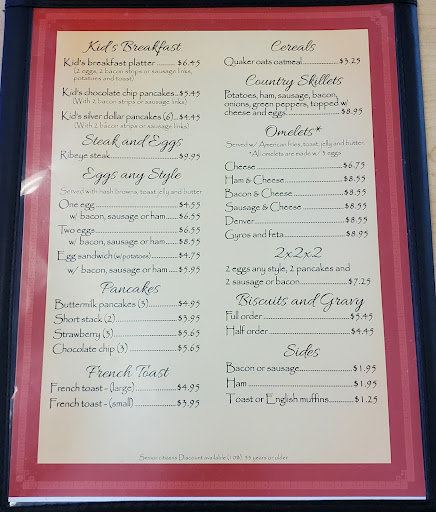 Kid's Breakfast
Kid's breakfast platter ........ $6.45
(2 eggs, 2 bacon strips or sausage links,
potatoes and toast)
Kid's chocolate chip pancakes..$5.45
(With 2 bacon strips or sausage links)
Kid's silver dollar pancakes (6)..$4.45
(With 2 bacon strips or sausage links)
Steak and Eggs
Ribeye steak..................$9.95
Eggs any Style
Served with hash browns, toast, jelly and butter
One egg......................$4.55
w/ bacon, sausage or ham......$6.55
Two eggs.....................$6.55
w/ bacon, sausage or ham......$8.55
Egg sandwich (w/potatoes)..........$4.75
w/ bacon, sausage or ham......$5.95
Pancakes
Buttermilk pancakes (3)..........$4.95
Short stack (2) ..................$3.95
Strawberry (3) ..................$5.65
Chocolate chip (3) ..............$5.65
French Toast
French toast - (large)............$4.95
French toast - (small) ............$3.95
Cereals
Quaker oats oatmeal..............$3.25
Country Skillets
Potatoes, ham, sausage, bacon,
onions, green peppers, topped w/
cheese and eggs..................$8.95
Omelets*
Served w/ American fries, toast, jelly and butter
*All omelets are made w/ 3 eggs
Cheese........................$6.75
Ham & Cheese..................$8.55
Bacon & Cheese ................$8.55
Sausage & Cheese ..............$8.55
Denver........................$8.55
Gyros and feta..................$8.95
2x2x2
2 eggs any style, 2 pancakes and
2 sausage or bacon................$7.25
Biscuits and Gravy
Full order ......................$5.45
Half order......................$4.45
Sides
Bacon or sausage................$1.95
Ham ..........................$1.95
Toast or English muffins............$1.25
Senior citizens Discount available (10%) 55 years or older